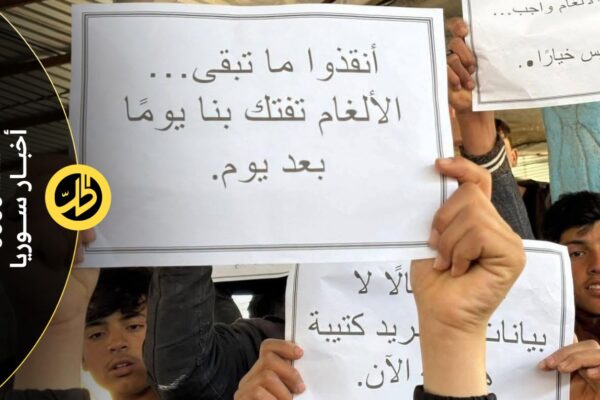 أنقذوا ما تبقى...
الألغام تفتك بنا يومًا
بعد يوم.
الألغام واجب...
خيارًا.
لا
بيانات
كتيبة
الآن.
أخبار سوريا